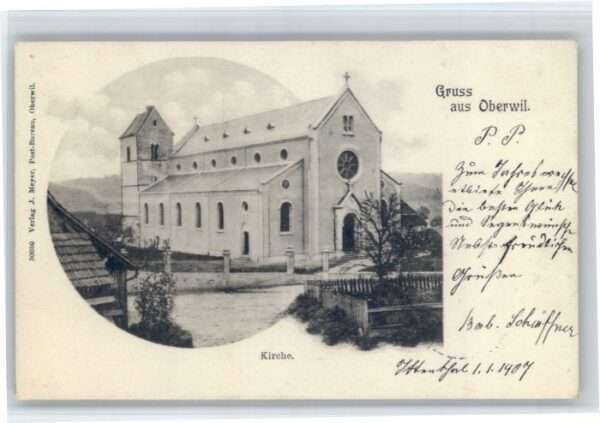 Gruss
aus Oberwil.
P. P.
Zum Jahreswechsel
die besten Glück
und Segenswünsche
Nebst freundlichen
Grüßen
Bab. Schaffner
1.1.1907
Kirche.
30086 Verlag J. Meyer, Post-Bureau, Oberwil.